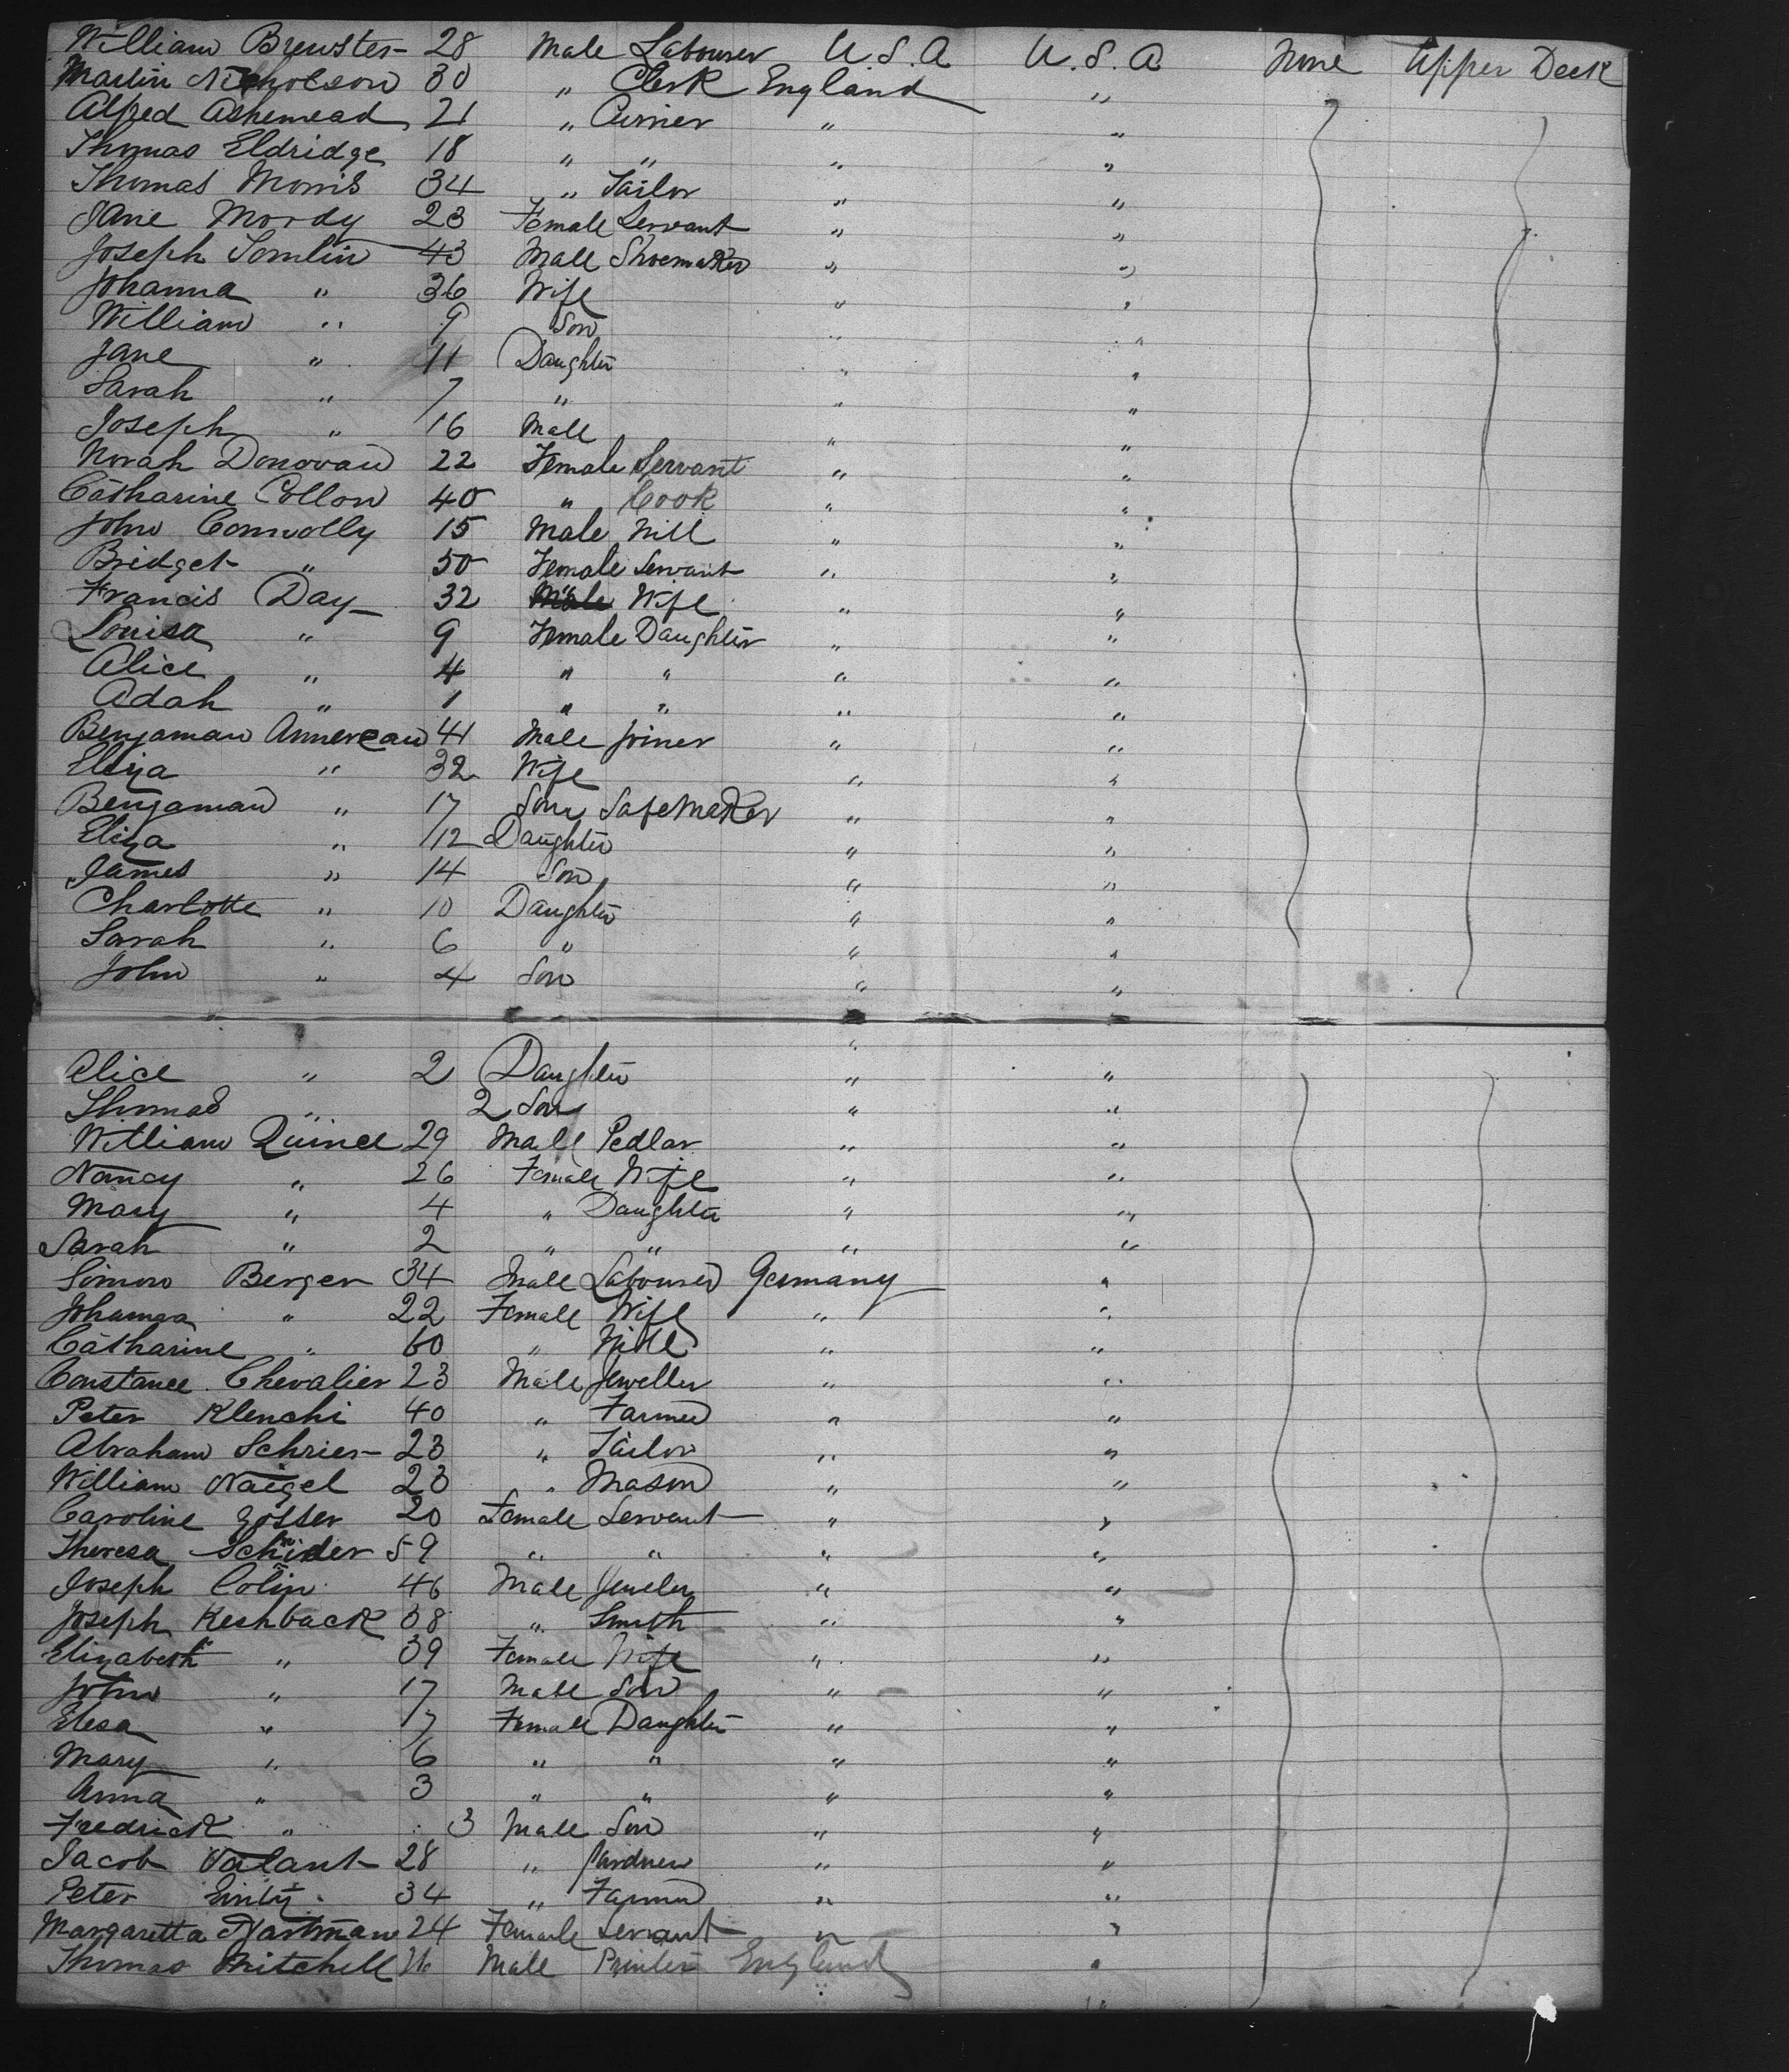 William Brewster 28 Male Labourer U.S.A U.S.A None Upper Deck
Martin Nicholson 30 " Clerk England "
Alfred Ashemead 21 " Currier " "
Thomas Eldridge 18 " " " "
Thomas Morris 34 " Tailor " "
Jane Moody 23 Female Servant " "
Joseph Tomlin 43 Male Shoemaker " "
Johanna " 36 Wife " "
William " 9 Son " "
Jane " 11 Daughter " "
Sarah " 7 " " "
Joseph " 16 Male " "
Norah Donovan 22 Female Servant " "
Catharine Collon 40 " Cook " "
John Connolly 15 Male Nill " "
Bridget " 50 Female Servant " "
Francis Day 32 Wife " "
Louisa " 9 Female Daughter " "
Alice " 4 " " " "
Adah " 1 " " " "
Benjaman Annereau 41 Male Joiner " "
Eliza " 32 Wife " "
Benjaman " 17 Son Safemaker " "
Eliza " 12 Daughter " "
James " 14 Son " "
Charlotte " 10 Daughter " "
Sarah " 6 " " "
John " 4 Son " "
Alice " 2 Daughter " "
Thomas " 2 Son " "
William Quince 29 Male Pedlar " "
Nancy " 26 Female Wife " "
Mary " 4 " Daughter " "
Sarah " 2 " " " "
Simon Berger 34 Male Labourer Germany "
Johanna " 22 Female Wife " "
Catharine " 60 " " "
Constance Chevalier 23 Male Jeweller " "
Peter Klenchi 40 " Farmer " "
Abraham Schrier 23 " Tailor " "
William Naigel 23 " Mason " "
Caroline 20 Female Servant " "
Theresa 59 " " " "
Joseph Colin 46 Male Jeweler " "
Joseph Keshback 38 " Smith " "
Elizabeth " 39 Female Wife " "
John " 17 Male Son " "
Elesa " 17 Female Daughter " "
Mary " 6 " " " "
Anna " 3 " " " "
Fredrick " 3 Male Son " "
Jacob Valant 28 " Gardner " "
Peter 34 " Farmer " "
Margaretta Hartman 24 Female Servant " "
Thomas Mitchell Male Printer England "